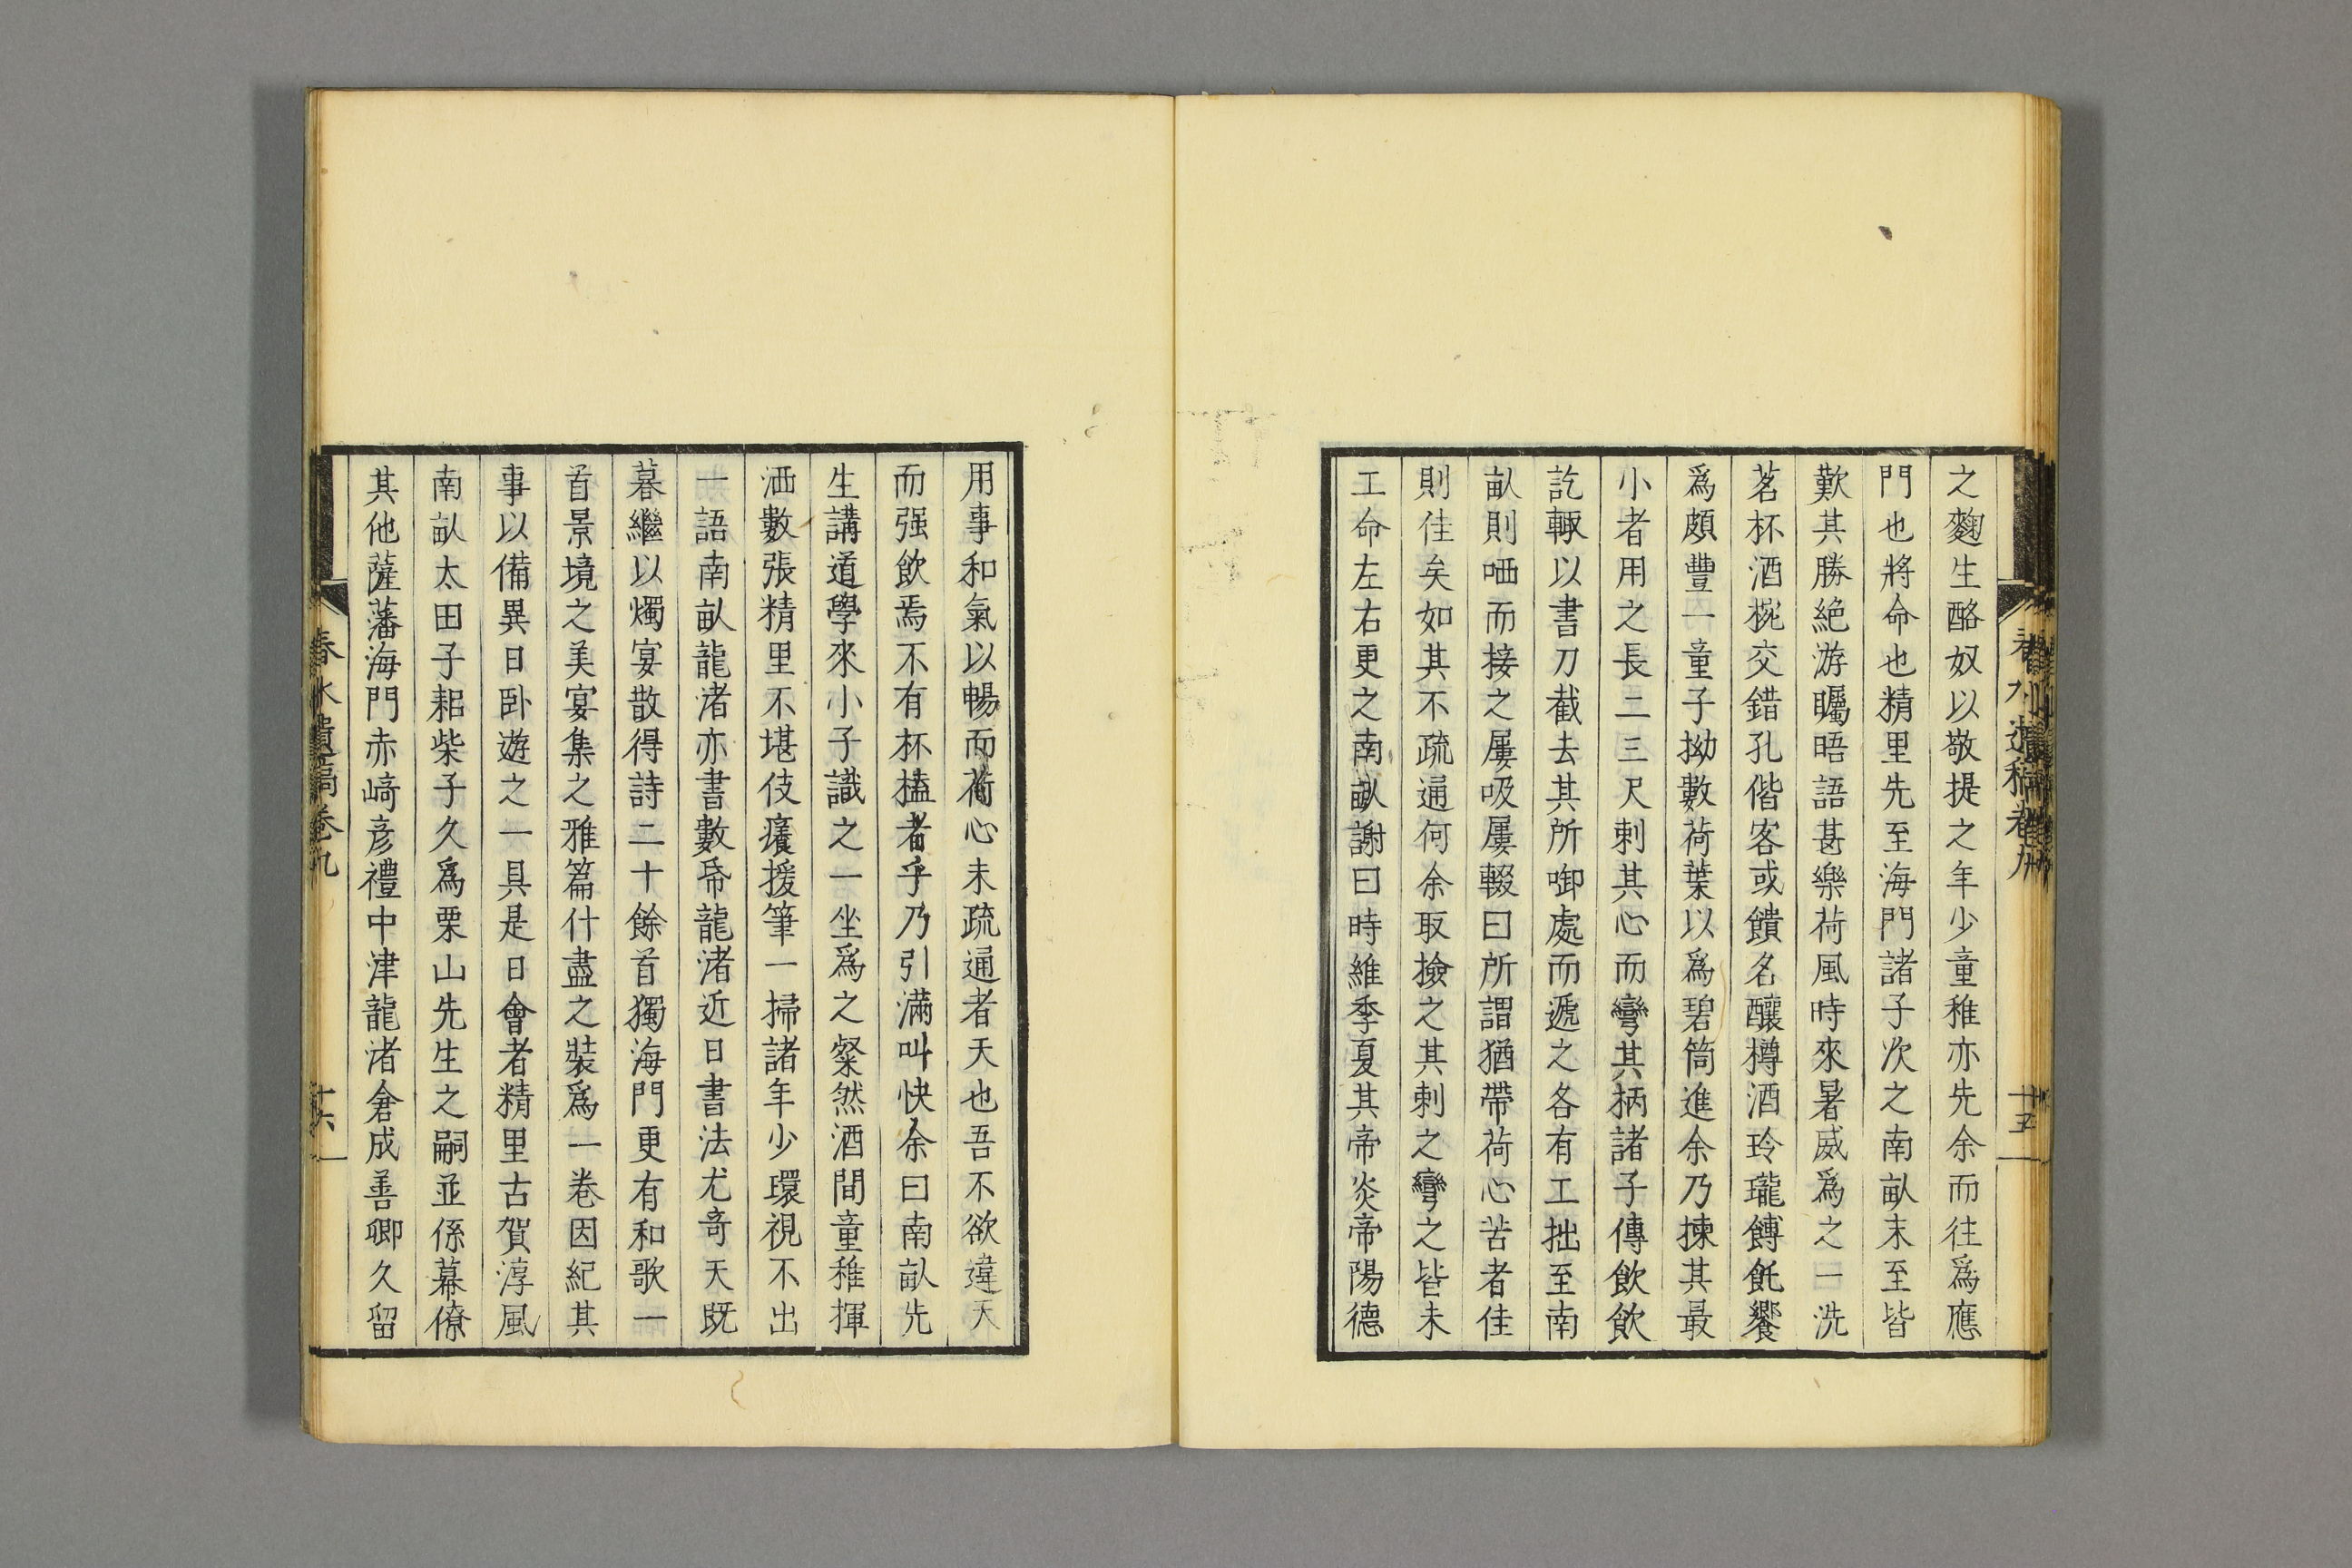 之麴生酪奴以敬提之年少童稚亦先余而往爲應
門也將命也精里先至海門諸子次之南畝末至皆
歎其勝絶游矚晤語甚樂荷風時來暑威爲之一洗
茗杯酒椀交錯孔偕客或饋名釀樽酒玲瓏餺飥饗
爲頗豐一童子拗數荷葉以爲碧筒進余乃揀其最
小者用之長二三尺刺其心而彎其柄諸子傳飲飲
訖輒以書刀截去其所啣處而遞之各有工拙至南
畝則哂而接之屢吸屢輟曰所謂猶帶荷心苦者佳
則佳矣如其不疏通何余取撿之其刺之彎之皆未
工命左右更之南畝謝曰時維季夏其帝炎帝陽德
用事和氣以暢而荷心未疏通者天也吾不欲違天
而强飲焉不有杯榼者乎乃引滿叫快余曰南畝先
生講道學來小子識之一坐爲之粲然酒間童稚揮
洒數張精里不堪伎癢援筆一掃諸年少環視不出
一語南畝龍渚亦書數帋龍渚近日書法尤奇天既
暮繼以燭宴散得詩二十餘首獨海門更有和歌一
首景境之美宴集之雅篇什盡之裝爲一卷因紀其
事以備異日卧遊之一具是日會者精里古賀淳風
南畝太田子耜柴子久爲栗山先生之嗣並係幕僚
其他薩藩海門赤﨑彦禮中津龍渚倉成善卿久留
春水遺稿卷九
十五
春水遺稿卷九
十六